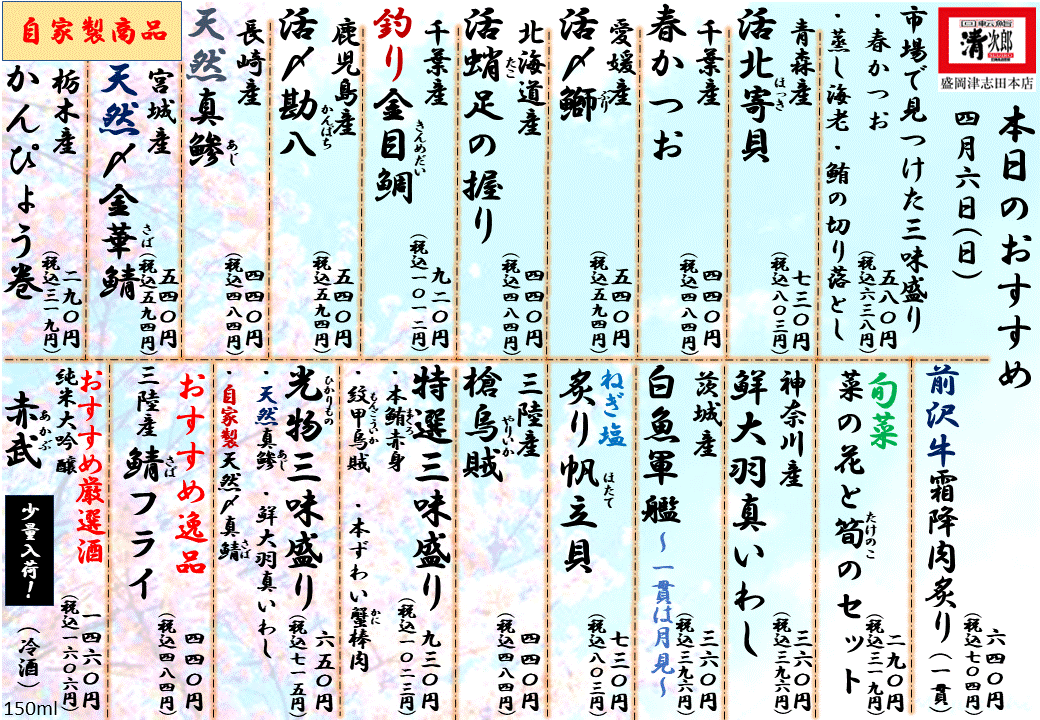 回転鮨
清次郎
盛岡津志田本店
本日のおすすめ
四月六日(日)
市場で見つけた三味盛り
・春かつお
・蒸し海老・鮪の切り落とし
五八〇円
(税込六三八円)
青森産
活北寄貝
ほっき
七三〇円
(税込八〇三円)
千葉産
春かつお
四四〇円
(税込四八四円)
愛媛産
活〆鰤
ぶり
五四〇円
(税込五九四円)
北海道産
活蛸足の握り
たこ
四四〇円
(税込四八四円)
千葉産
釣り金目鯛
きんめだい
九二〇円
(税込一〇一二円)
鹿児島産
活〆勘八
かんぱち
五四〇円
(税込五九四円)
長崎産
天然真鯵
あじ
四四〇円
(税込四八四円)
自家製商品
宮城産
天然〆金華鯖
さば
五四〇円
(税込五九四円)
栃木産
かんぴょう巻
二九〇円
(税込三一九円)
前沢牛霜降肉炙り(一貫)
六四〇円
(税込七〇四円)
旬菜
菜の花と筍のセット
たけのこ
二九〇円
(税込三一九円)
神奈川産
鮮大羽真いわし
三六〇円
(税込三九六円)
茨城産
白魚軍艦~一貫は月見~
三六〇円
(税込三九六円)
ねぎ塩
炙り帆立貝
ほたて
七三〇円
(税込八〇三円)
三陸産
槍烏賊
やりいか
四四〇円
(税込四八四円)
特選三味盛り
・本鮪赤身
まぐろ
・紋甲烏賊
もんこういか
・本ずわい蟹棒肉
かに
九三〇円
(税込一〇二三円)
光物三味盛り
ひかりもの
・天然真鯵・鮮大羽真いわし
あじ
・自家製天然〆真鯖
さば
六五〇円
(税込七一五円)
おすすめ逸品
三陸産鯖フライ
さば
四四〇円
(税込四八四円)
おすすめ厳選酒
純米大吟醸
赤武
あかぶ
少量入荷!
(冷酒)
一四六〇円
(税込一六〇六円)
150ml